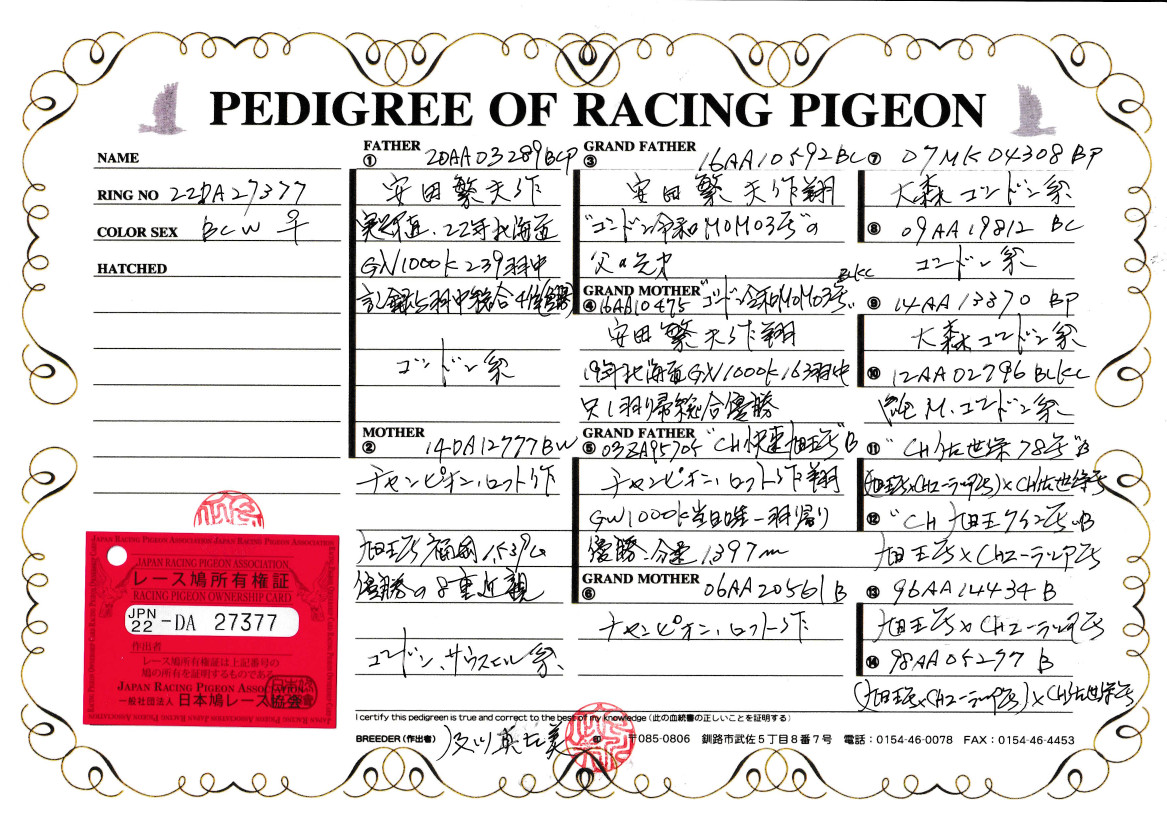 PEDIGREE OF RACING PIGEON
NAME
RING NO 22DA27377
COLOR SEX BCW ♀
HATCHED
FATHER
① 20AA03289BCP
安田繁夫作
実名直、22年北海道
GN1000K239羽中
記録5羽中総合4位
コンドン系
MOTHER
② 14DA12777BW
チャンピオン、ロフト作
旭王号福岡1539Km
優勝の8重近親
コンドン、サウスエル系、
GRAND FATHER
③ 16AA10592BC
安田繁夫作翔
"コンドン令和MOMO3号"の
父の兄弟
GRAND MOTHER BLKC
④ 16AA10475 "コンドン令和MOMO3号"
安田繁夫作翔
19年北海道GN1000K163羽中
只1羽帰総合優勝
GRAND FATHER
⑤ 03ZA95705 "CH快速旭王号"B
チャンピオン、ロフト作翔
GN1000K当日唯一羽帰り
優勝:分速1397m
GRAND MOTHER
⑥ 06AA20561B
チャンピオン、ロフト作
⑦ 07MK04308 BP
大森コンドン系
⑧ 09AA19812 BC
コンドン系
⑨ 14AA13370 BP
大森コンドン系
⑩ 12AA02796 BLKC
純M、コンドン系
⑪ "CH佐世保78号"B
(旭王号×CHユーラシア号)×CH佐世保号
⑫ "CH旭王クイン号"B
旭王号×CHユーラシア号
⑬ 96AA14434 B
旭王号×CHユーラシア号
⑭ 98AA05297 B
(旭王号×CHユーラシア号)×CH佐世保号
JAPAN RACING PIGEON ASSOCIATION
レース鳩所有権証
RACING PIGEON OWNERSHIP CARD
JPN 22 -DA 27377
作出者
レース鳩所有権証は上記番号の
鳩の所有を証明するものである
JAPAN RACING PIGEON ASSOCIATION
一般社団法人 日本鳩レース協会
I certify this pedigreen is true and correct to the best of my knowledge (此の血統書の正しいことを証明する)
BREEDER (作出者) 及川真左美 ㊞ 〒085-0806 釧路市武佐5丁目8番7号 電話:0154-46-0078 FAX:0154-46-4453